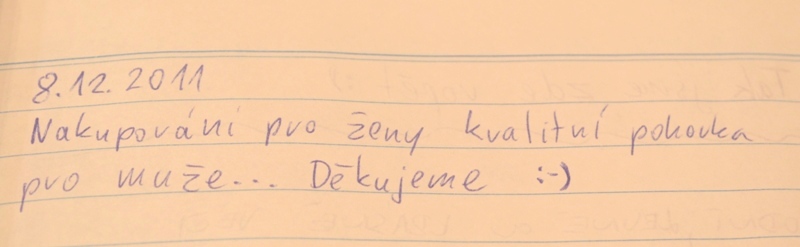 8.12.2011
Nakupování pro ženy kvalitní pohovka
pro muže... Děkujeme :-)